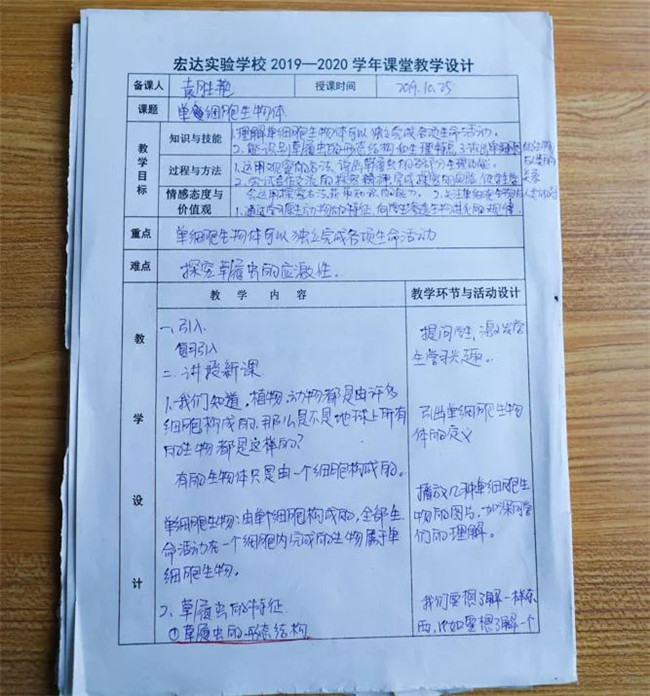 宏达实验学校2019—2020学年课堂教学设计
备课人 袁胜艳 授课时间 2019.10.25
课题 单细胞生物体
教学目标
知识与技能 1.理解单细胞生物体可以独立完成各项生命活动。
2.能识别草履虫的形态结构和生理特点
过程与方法 1.运用观察的方法,说出草履虫的各部分生理功能。
2.
情感态度与价值观
1.通过学习原生动物的特征,向学生渗透生物进化的规律。
重点 单细胞生物体可以独立完成各项生命活动
难点 探究草履虫的应激性。
教学内容 教学环节与活动设计
教学设计
一、引入
复习引入
二、讲授新课
1.我们知道,植物、动物都是由许多
细胞构成的,那么是不是地球上所有
的生物都是这样的?
有的生物体只是由一个细胞构成的。
单细胞生物:由单个细胞构成的,全部生
命活动在一个细胞内完成的生物属于单
细胞生物。
2、草履虫的特征
①草履虫的形态结构
提问学生,激发学
生学习兴趣。
引出单细胞生物
体的定义
播放几种单细胞生
物的图片,加深同学
们的理解。
我们要想了解一样东
西,比如要想了解一个